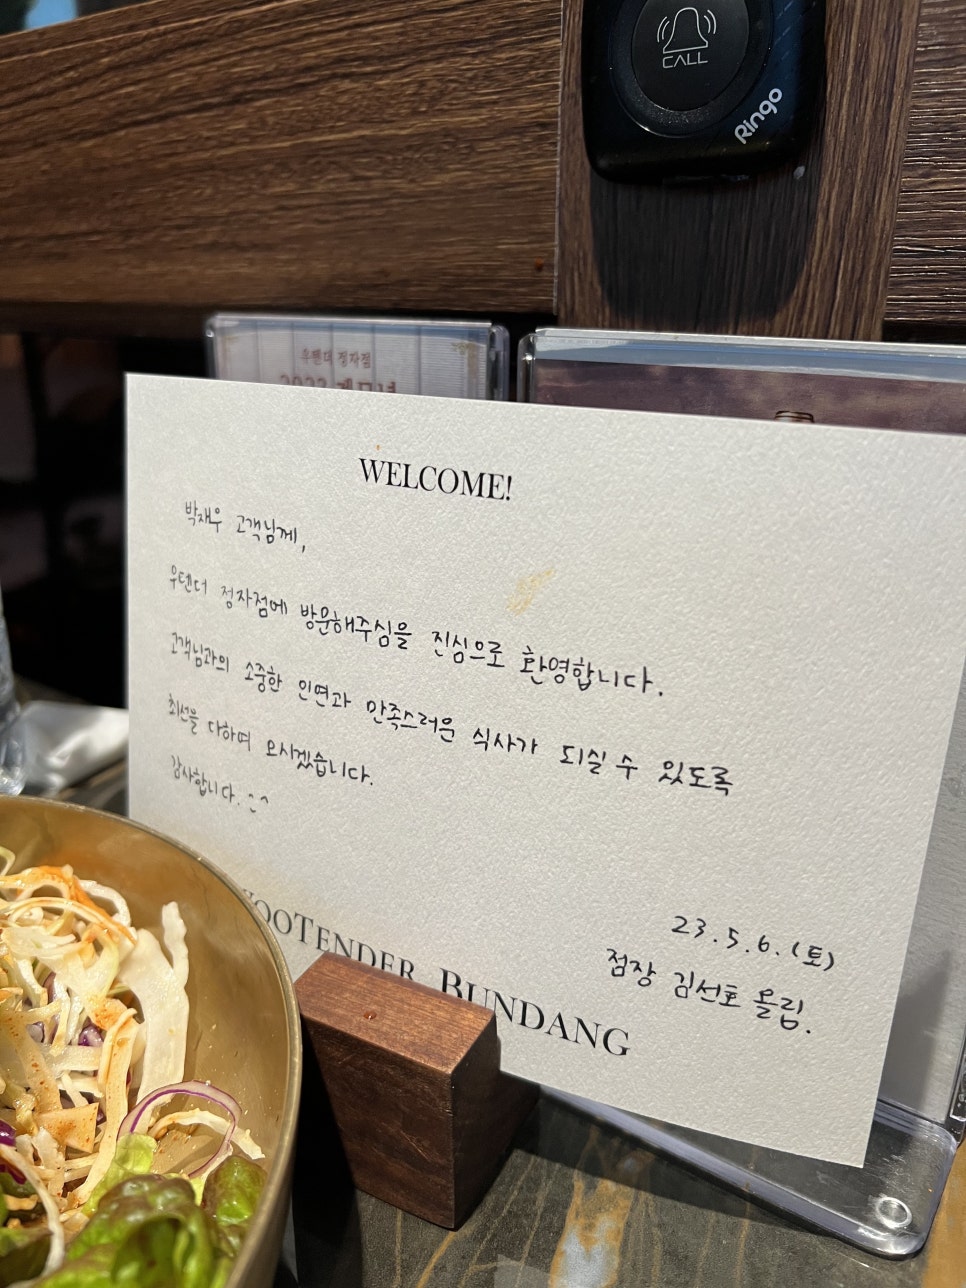 CALL
Ringo
우텐더 정자점
2023 계묘년
WELCOME!
박재우 고객님께,
우텐더 정자점에 방문해주심을 진심으로 환영합니다.
고객님과의 소중한 인연과 만족스러운 식사가 되실 수 있도록
최선을 다하여 모시겠습니다.
감사합니다. ^^
WOOTENDER BUNDANG
23.5.6.(토)
점장 김선호 올림.